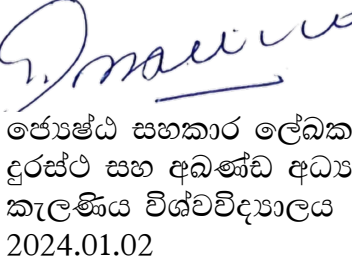 ජ්‍යෙෂ්ඨ සහකාර ලේඛක
දුරස්ථ සහ අඛණ්ඩ අධ්‍ය
කැලණිය විශ්වවිද්‍යාලය
2024.01.02